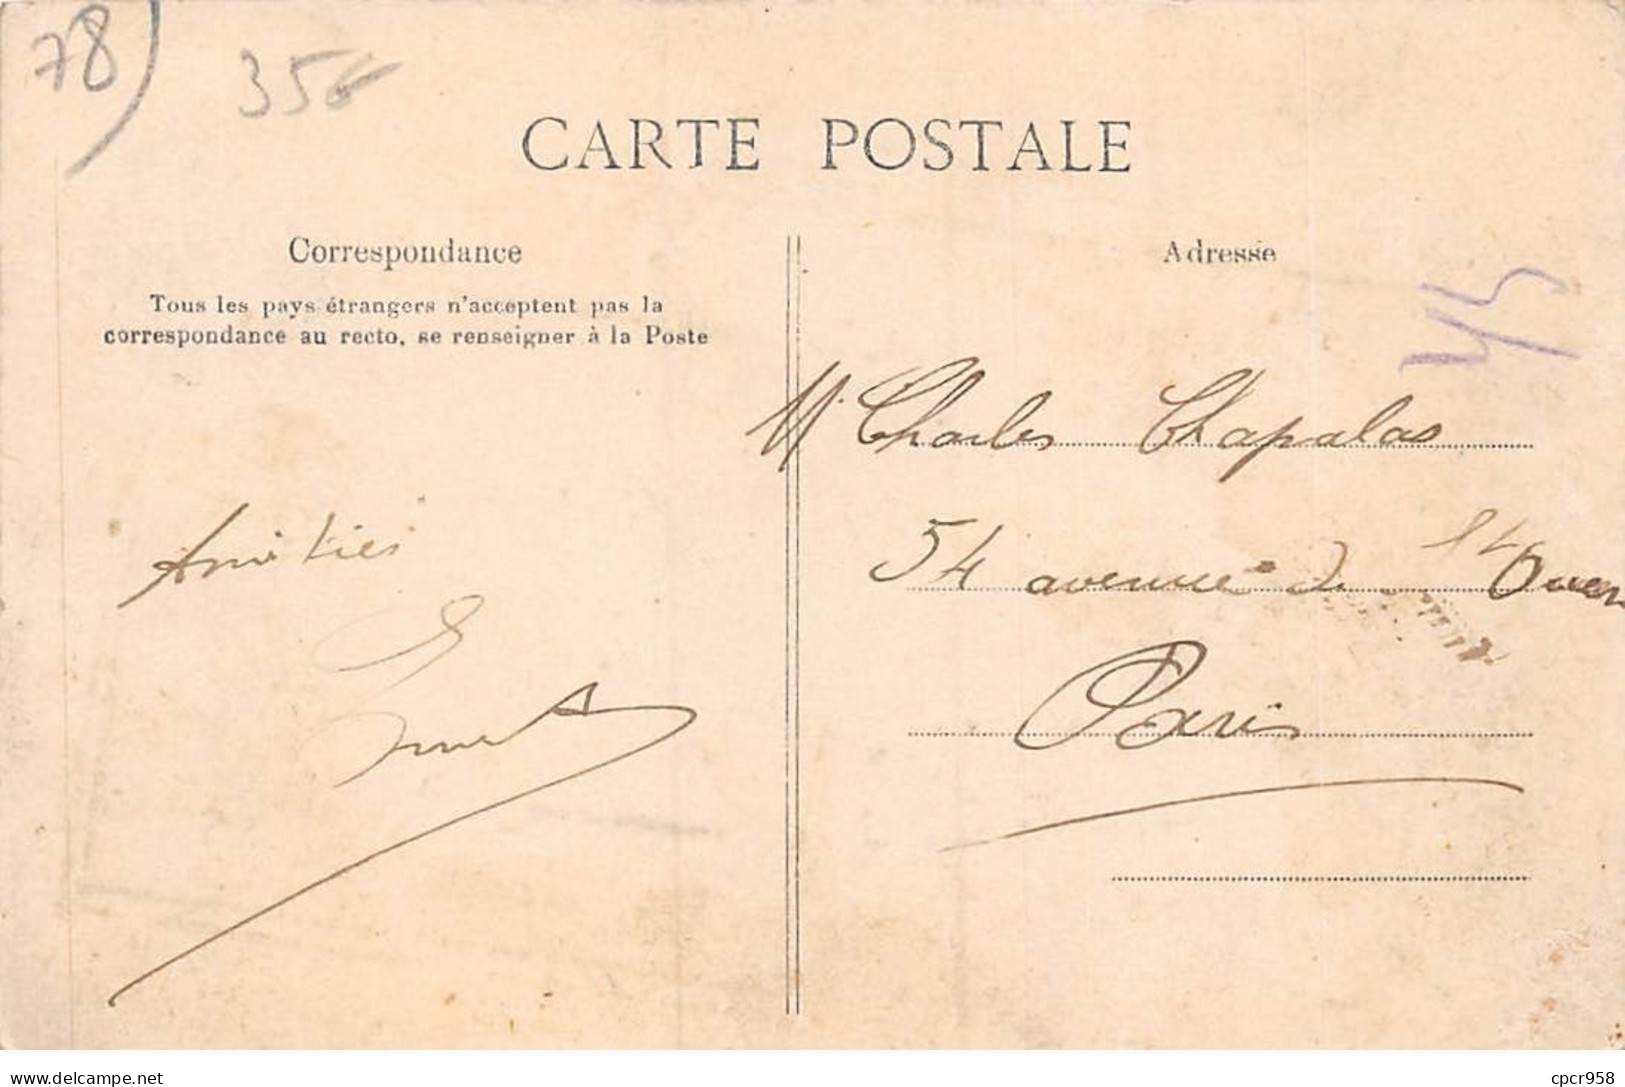 78)
35€
CARTE POSTALE
Correspondance
Tous les pays étrangers n'acceptent pas la
correspondance au recto, se renseigner à la Poste
Amitiés
Adresse
M. Charles Chapalas
54 avenue de St Ouen
Paris
delcampe.net
cpcr958